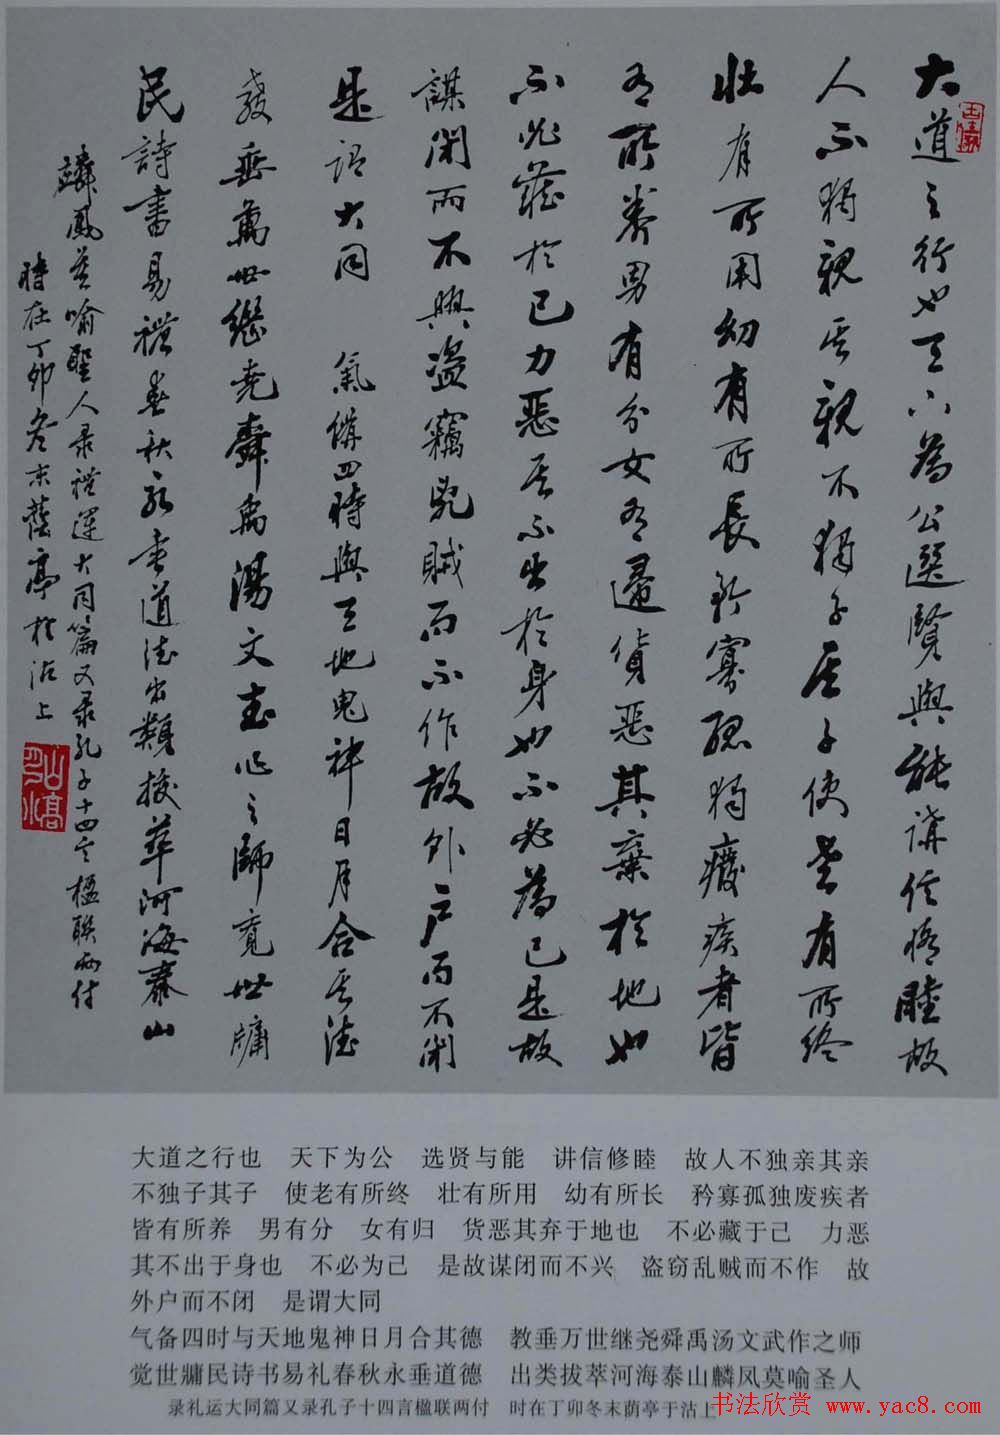 大道之行也天下為公選賢與能講信修睦故
人不獨親其親不獨子其子使老有所終
壯有所用幼有所長矜寡孤獨廢疾者皆
有所養男有分女有歸貨惡其棄於地也
不必藏於己力惡其不出於身也不必為己是故
謀閉而不興盜竊亂賊而不作故外户而不閉
是謂大同 氣備四時與天地鬼神日月合其德
教垂萬世繼堯舜禹湯文武作之師覺世牖
民詩書易禮春秋永垂道德出類拔萃河海泰山
麟鳳莫喻聖人录禮運大同篇又录孔子十四言楹联兩付
時在丁卯冬末蔭亭於沽上
大道之行也 天下为公 选贤与能 讲信修睦 故人不独亲其亲
不独子其子 使老有所终 壮有所用 幼有所长 矜寡孤独废疾者
皆有所养 男有分 女有归 货恶其弃于地也 不必藏于己 力恶
其不出于身也 不必为己 是故谋闭而不兴 盗窃乱贼而不作 故
外户而不闭 是谓大同
气备四时与天地鬼神日月合其德 教垂万世继尧舜禹汤文武作之师
觉世牖民诗书易礼春秋永垂道德 出类拔萃河海泰山麟凤莫喻圣人
录礼运大同篇又录孔子十四言楹联两付 时在丁卯冬末荫亭于沽上
书法欣赏 www.yac8.com